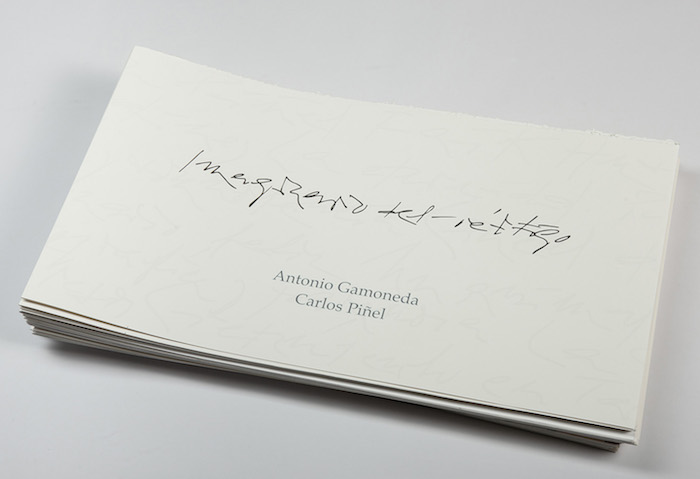 Imaginario del vértigo
Antonio Gamoneda
Carlos Piñel